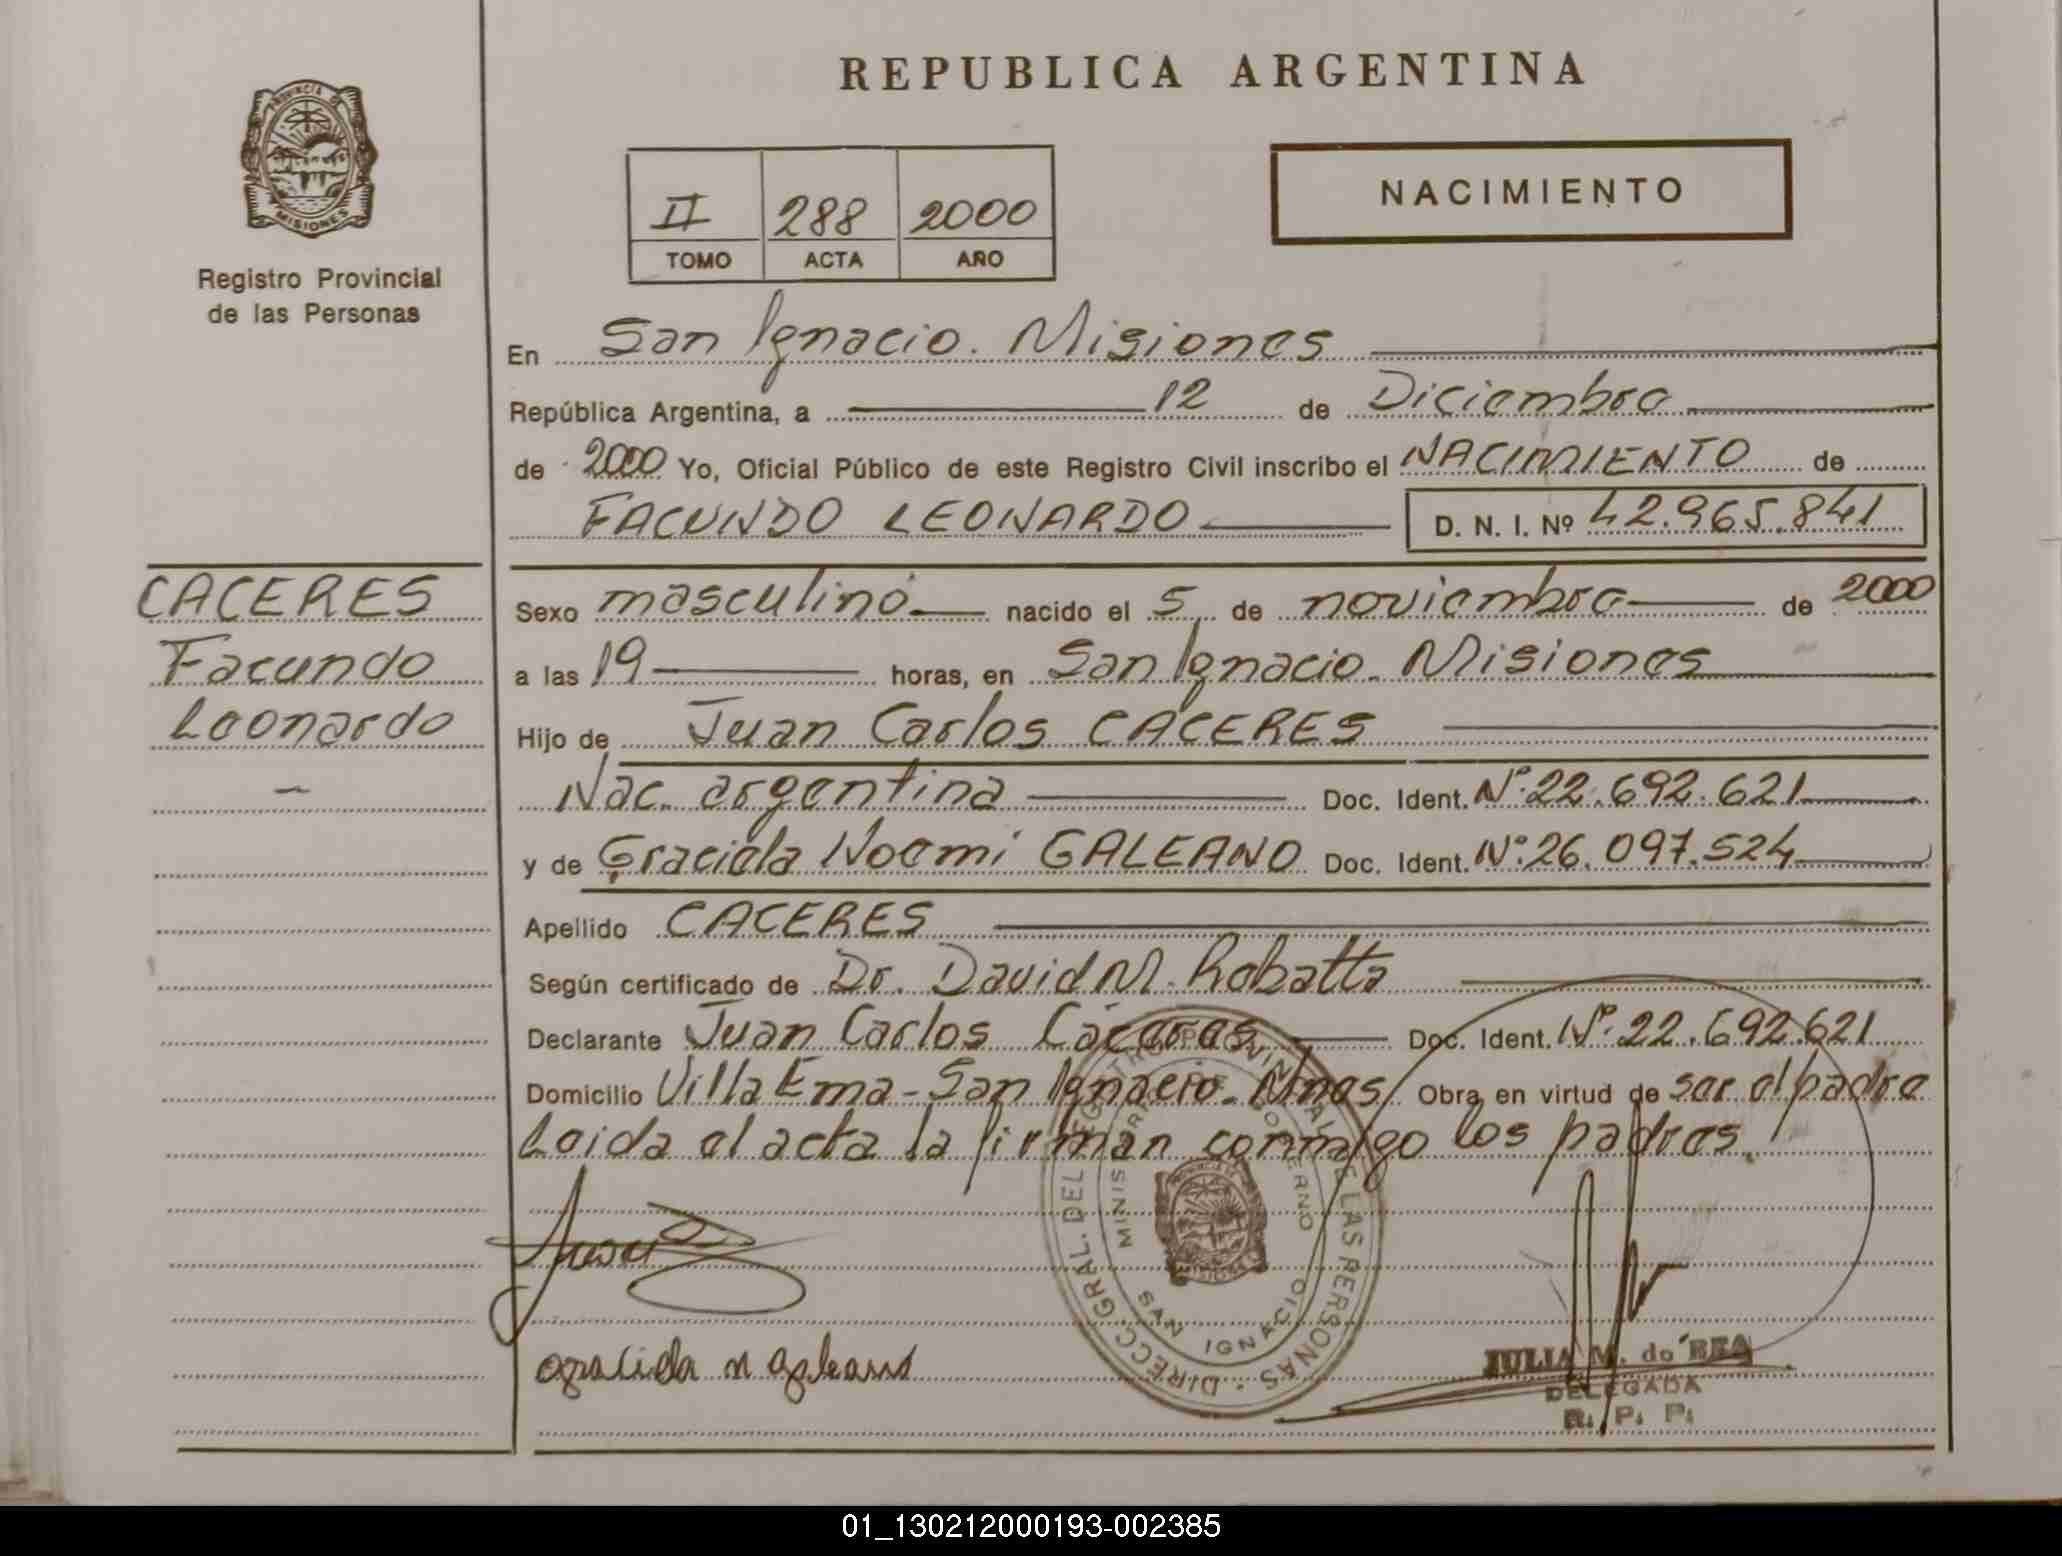 REPUBLICA ARGENTINA
PROVINCIA DE
MISIONES
Registro Provincial
de las Personas
II 288 2000
TOMO ACTA AÑO
NACIMIENTO
En San Ignacio. Misiones
República Argentina, a 12 de Diciembre
de 2000 Yo, Oficial Público de este Registro Civil inscribo el NACIMIENTO de
FACUNDO LEONARDO D. N. I. Nº 42.965.841
CACERES
Facundo
Leonardo
Sexo masculino nacido el 5 de noviembre de 2000
a las 19 horas, en San Ignacio. Misiones
Hijo de Juan Carlos CACERES
Nac. argentina Doc. Ident. Nº 22.692.621
y de Graciela Noemí GALEANO Doc. Ident. Nº 26.097.524
Apellido CACERES
Según certificado de Dr. David M. Robatta
Declarante Juan Carlos Cáceres Doc. Ident. Nº 22.692.621
Domicilio Villa Ema - San Ignacio. Mnes/ Obra en virtud de ser el padre
Leida el acta la firman conmigo los padres.
DIRECC. GRAL. DEL REGISTRO PROVINCIAL DE LAS PERSONAS
MINISTERIO DE GOBIERNO
SAN IGNACIO
graciela n galeano
JULIA M. do REA
DELEGADA
R. P. P.
01_130212000193-002385